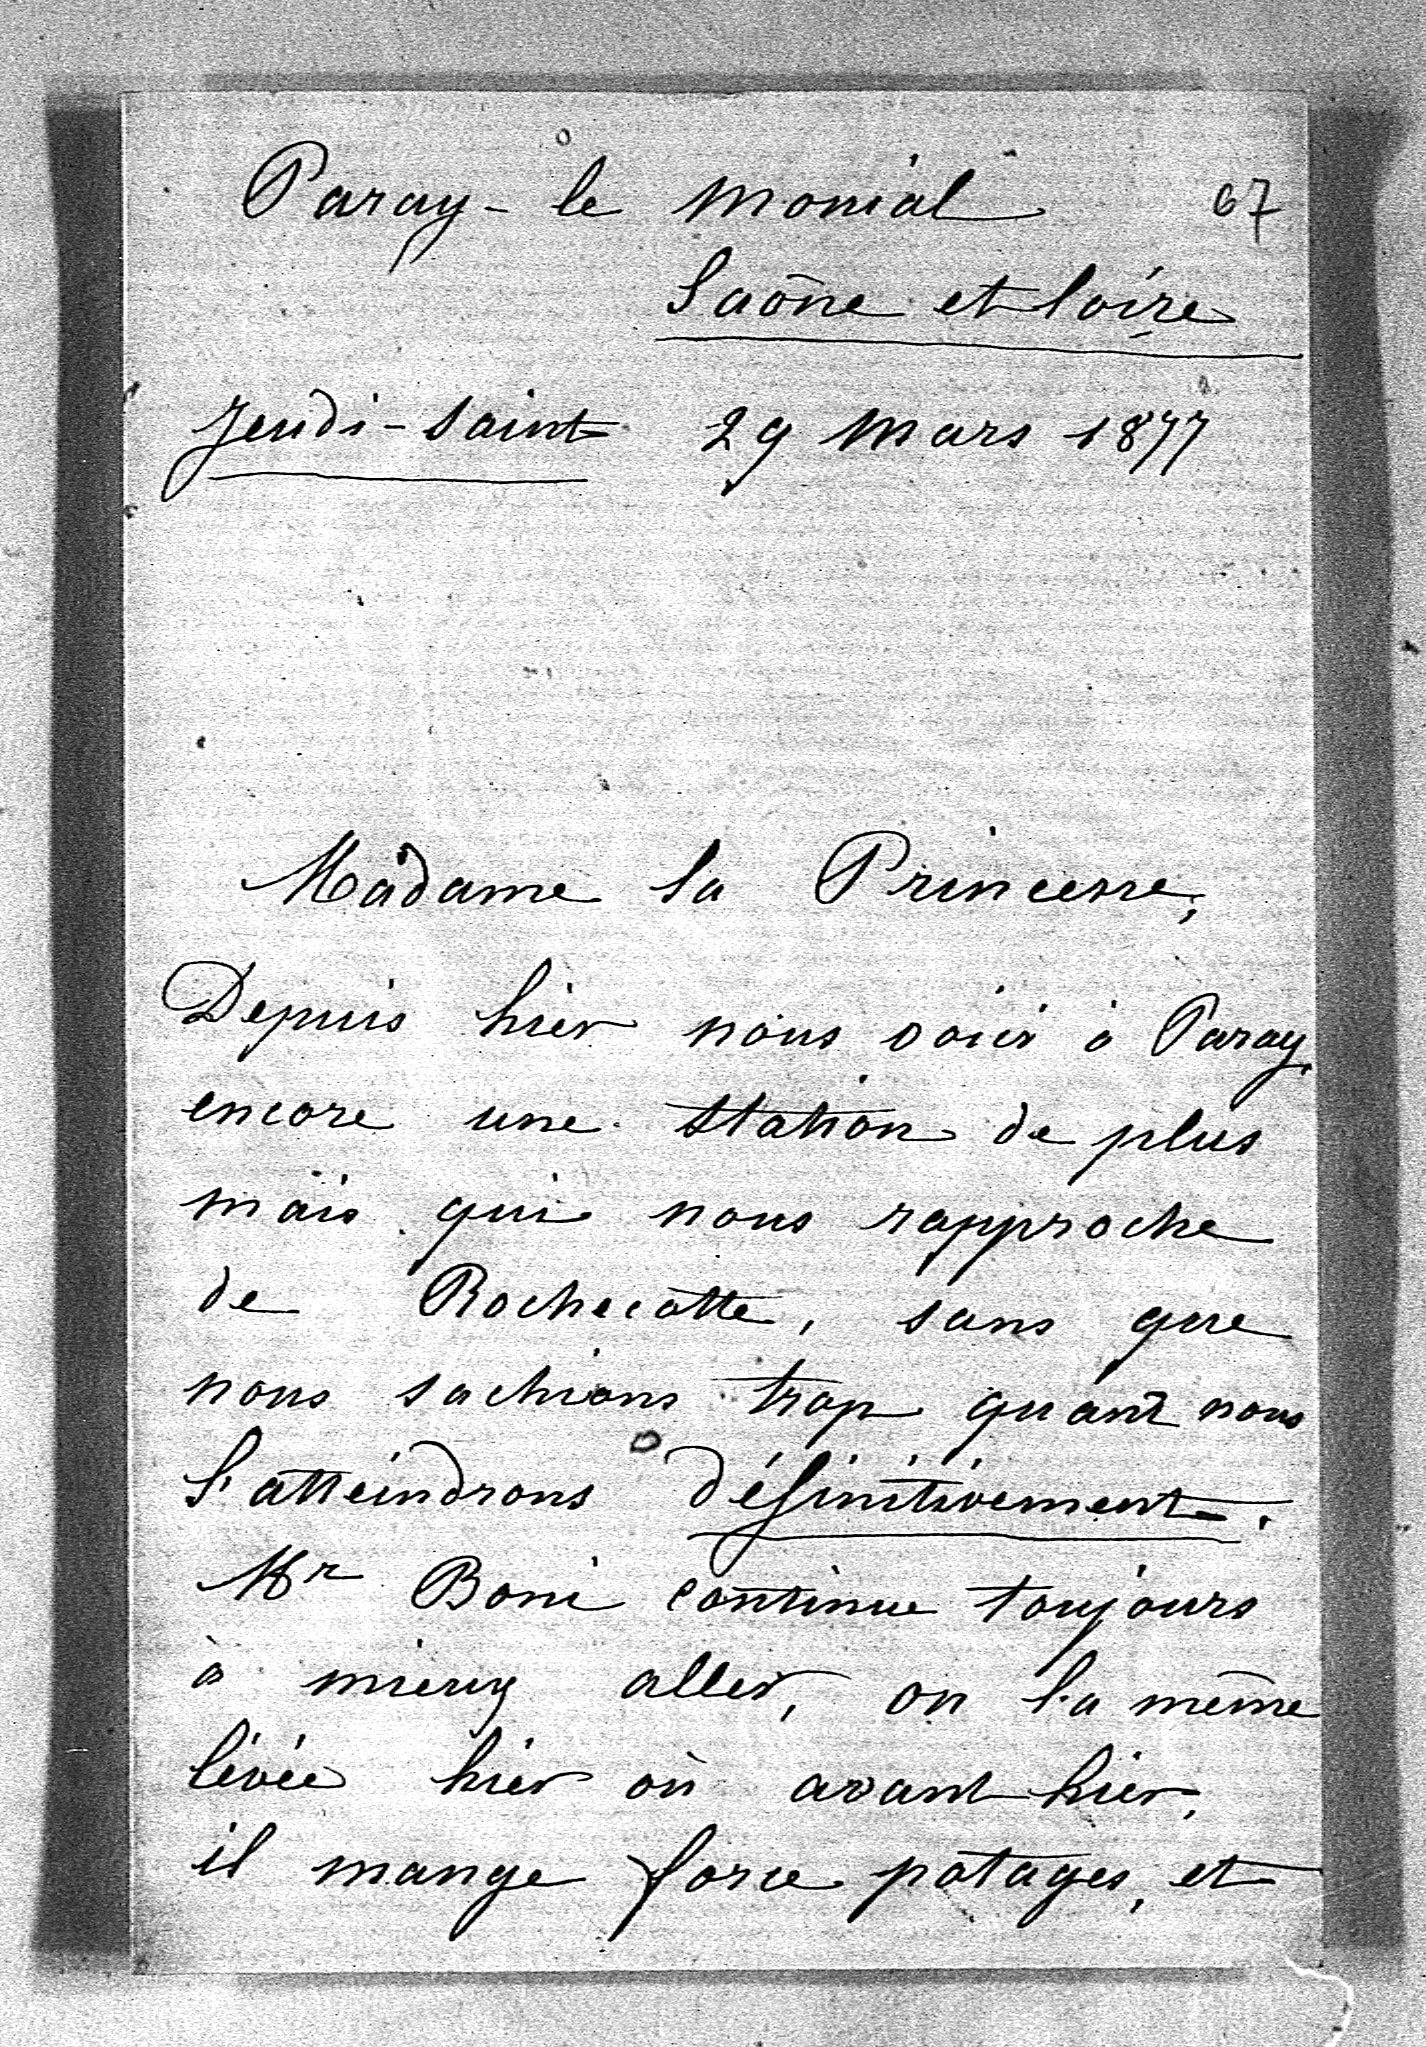 Paray-le Monial 67
Saône et Loire
Jeudi-Saint 29 Mars 1877
Madame la Princesse,
Depuis hier nous voici à Paray,
encore une station de plus
mais qui nous rapproche
de Rochecotte, sans que
nous sachions trop quant nous
l'atteindrons définitivement.
Mr Boni continue toujours
à mieux aller, on l'a même
levée hier où avant hier,
il mange force potages, et